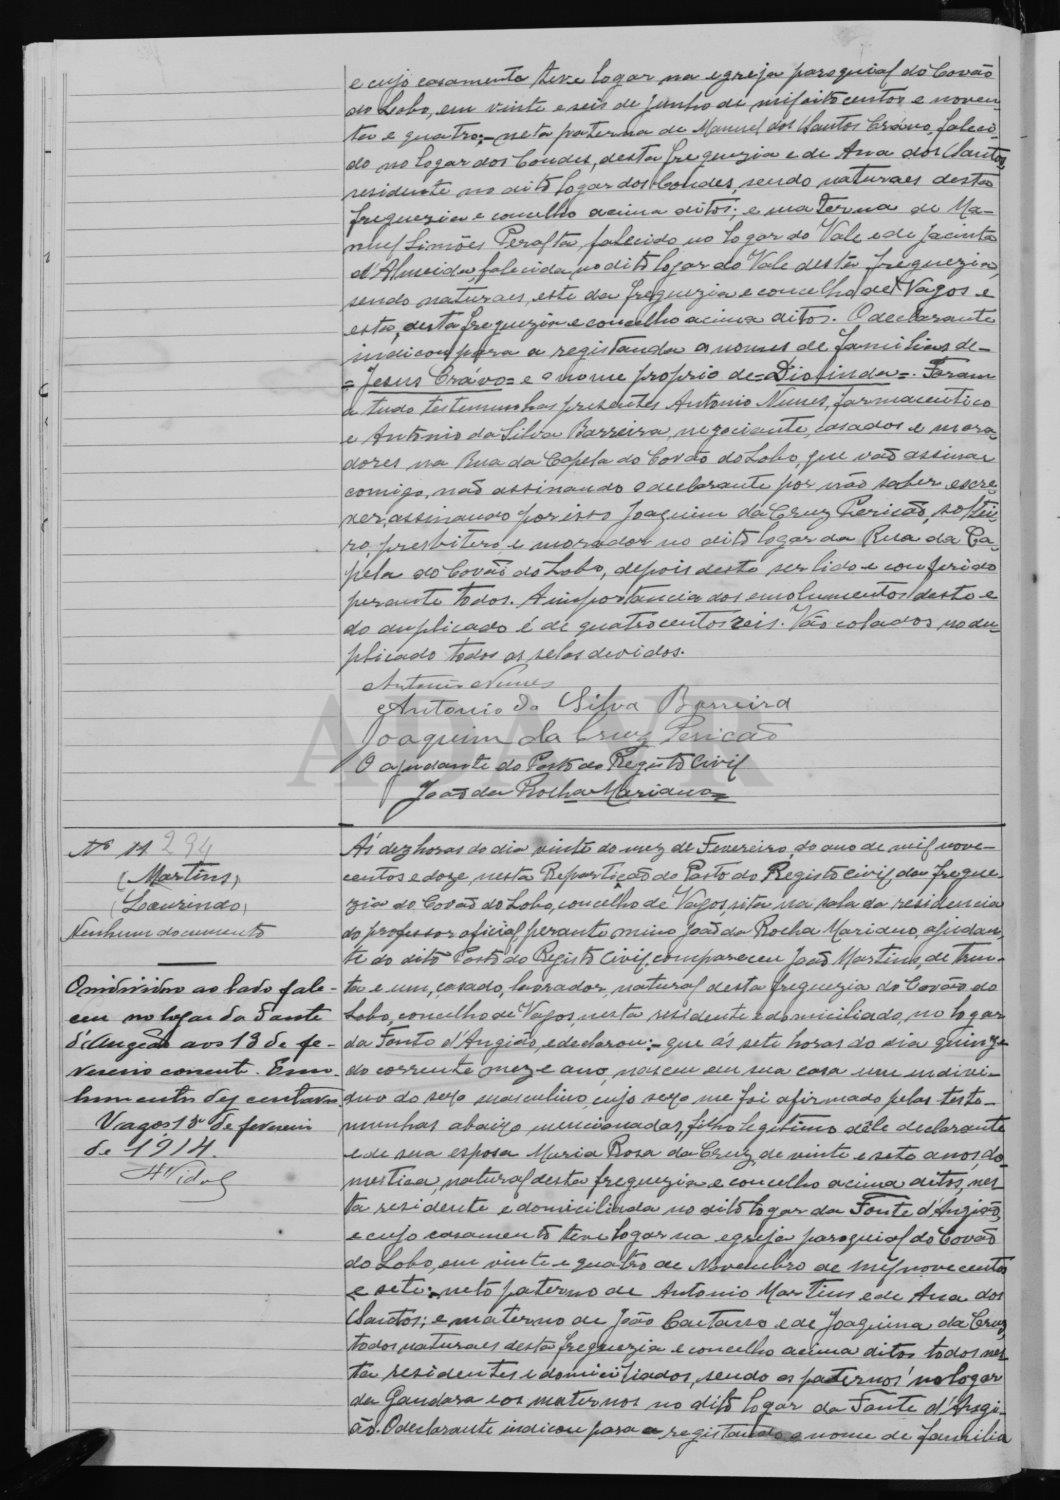 e cujo casamento teve logar na egreja paroquial do Covão
do Lobo, em vinte e seis de junho de mil oitocentos e noven-
ta e quatro;- neta paterna de Manuel dos Santos Crávo, faleci-
do no logar dos Condes, desta freguezia e de Ana dos Santos,
residente no dito logar dos Condes, sendo naturaes desta
freguezia e concelho acima ditos; e materna de Ma-
nuel Simões Peralta, falecido no logar do Vale e de Jacinta
d'Almeida, falecida, no dito logar do Vale desta freguezia,
sendo naturaes, este da freguezia e concelho de Vagos e
esta, desta freguezia e concelho acima ditos. O declarante
indicou para a registanda os nomes de familias de-
=Jesus Crávo= e o nome proprio de=Diolinda=. Foram
a tudo testemunhas presentes Antonio Nunes, farmaceutico
e Antonio da Silva Barreira, negociante, casados e mora-
dores na Rua da Capela do Covão do Lobo, que vão assinar
comigo, não assinando o declarante por não saber escre-
ver, assinando por isso Joaquim da Cruz Pericão, soltei-
ro, presbitero, e morador no dito logar da Rua da Ca-
péla do Covão do Lobo, depois deste ser lido e conferido
perante todos. A importancia dos emolumentos deste e
do duplicado é de quatrocentos reis. Vão colados no du-
plicado todos os selos devidos.
Antonio Nunes
Antonio da Silva Barreira
Joaquim da Cruz Pericão
O ajudante do Posto do Registo Civil
João da Rocha Mariano
Nº 11 294
(Martins)
(Laurindo)
Nenhum documento
O individuo ao lado fale-
ceu no logar da Fonte
d'Angião aos 13 de fe-
vereiro corrente. Emo-
lumentos dez centavos.
Vagos 18 de fevereiro
de 1914.
H Vidal
Ás dez horas do dia vinte do mez de Fevereiro, do ano de mil nove-
centos e doze, nesta Repartição do Posto do Registo Civil da fregue-
zia do Covão do Lobo, concelho de Vagos, sita na sala da residencia
do professor oficial, perante mim João da Rocha Mariano, ajudan-
te do dito Posto do Registo Civil, compareceu João Martins, de trin-
ta e um, casado, lavrador, natural desta freguezia do Covão do
Lobo, concelho de Vagos, nesta residente e domiciliado, no logar
da Fonte d'Angião, e declarou:- que ás sete horas do dia quinze
do corrente mez e ano, nasceu em sua casa um indivi-
duo do sexo masculino, cujo sexo me foi afirmado pelas teste-
munhas abaixo mencionadas, filho legitimo dêle declarante
e de sua esposa Maria Rosa da Cruz, de vinte e sete anos, do-
mestica, natural desta freguezia e concelho acima ditos, nes-
ta residente e domiciliada no dito logar da Fonte d'Angião,
e cujo casamento teve logar na egreja paroquial do Covão
do Lobo, em vinte e quatro de Novembro de mil novecentos
e sete;- neto paterno de Antonio Martins e de Ana dos
Santos; e materno de João Caetano e de Joaquina da Cruz,
todos naturaes desta freguezia e concelho acima ditos todos nes-
ta residentes e domiciliados, sendo os paternos no logar
da Gandara e os maternos no dito logar da Fonte d'Angi-
ão. O declarante indicou para o registando o nome de familia